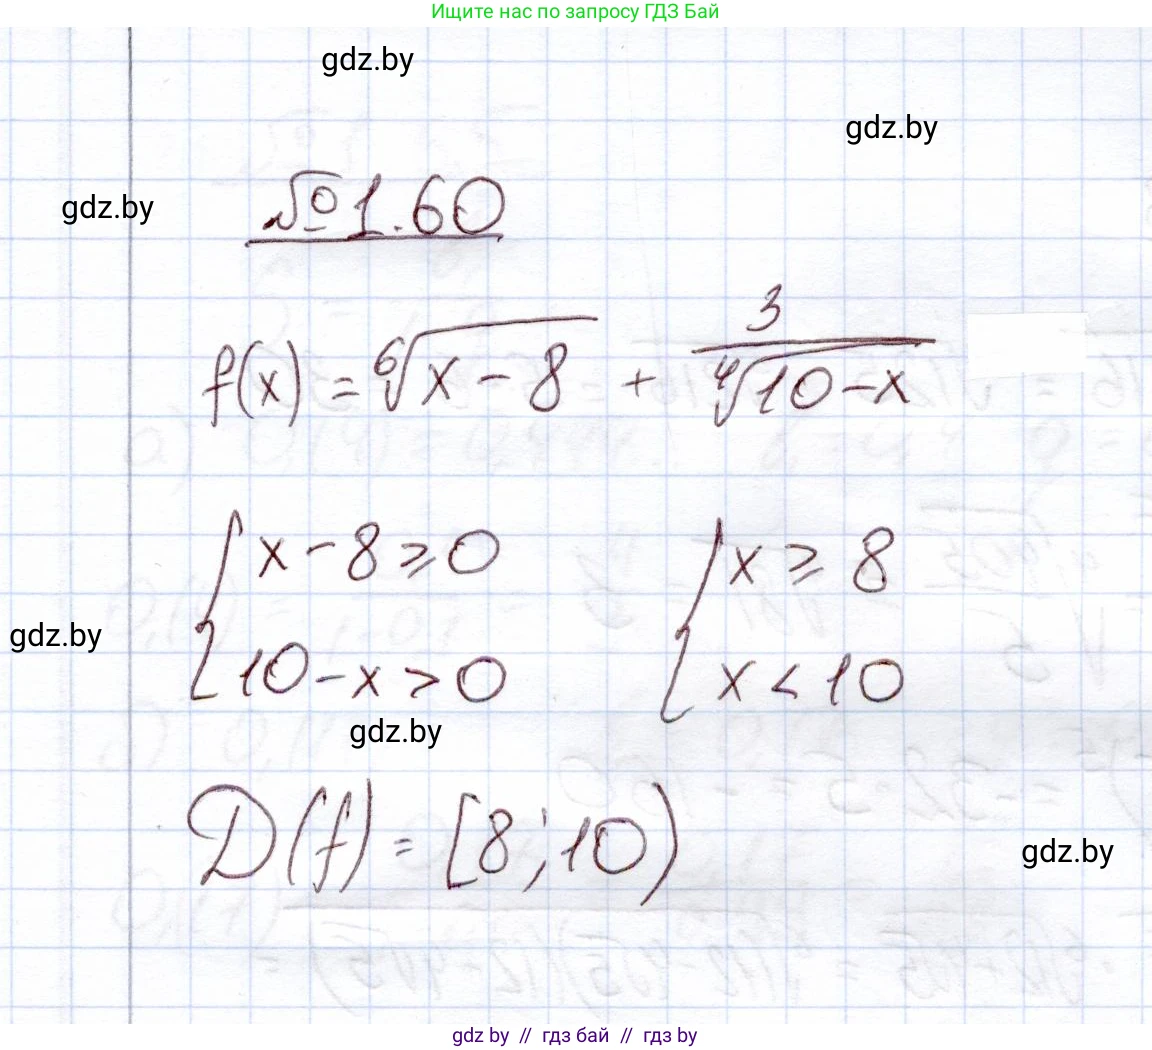 Ищите нас по запросу ГДЗ Бай
gdz.by
gdz.by
gdz.by
№1.60
f(x) = ⁶√(x-8) + 3/⁴√(10-x)
{ x-8≥0 { x≥8
gdz.by
{ 10-x>0 { x<10
gdz.by
D(f) = [8;10)
gdz.by
gdz by // гдз бай // гдз by